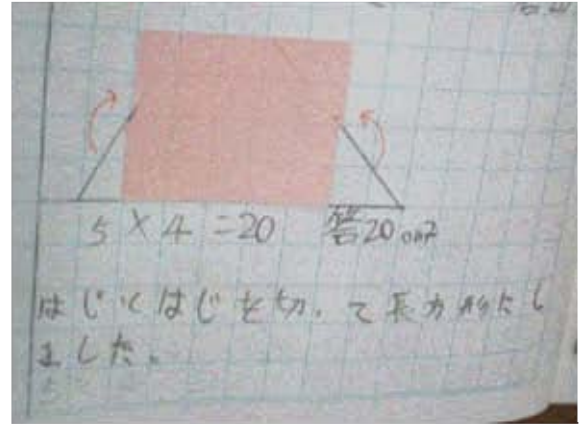 5 × 4 = 20 答 20 cm²
はじとはじを切って長方形にし
ました。